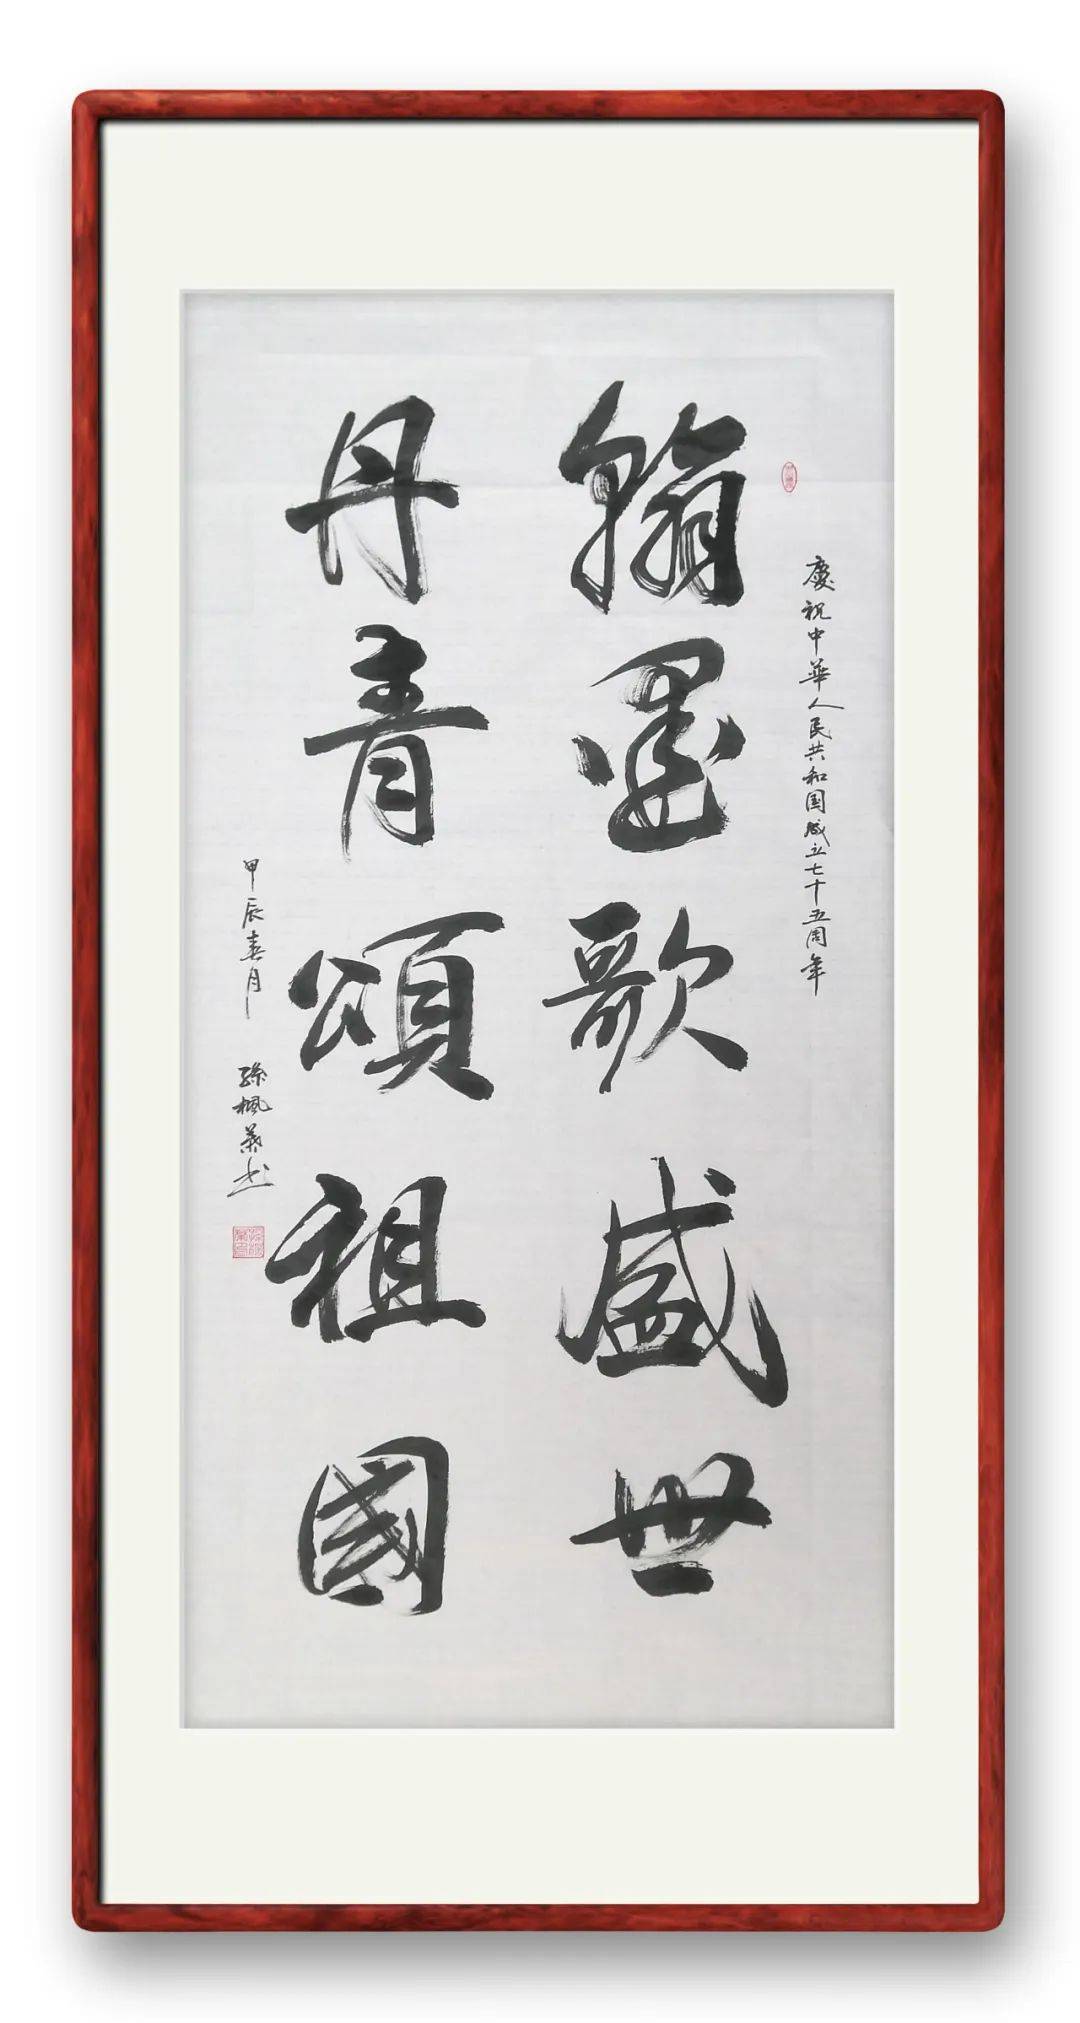 慶祝中華人民共和国成立七十五周年
翰墨歌盛世
丹青頌祖國
甲辰春月
孫楓葉书